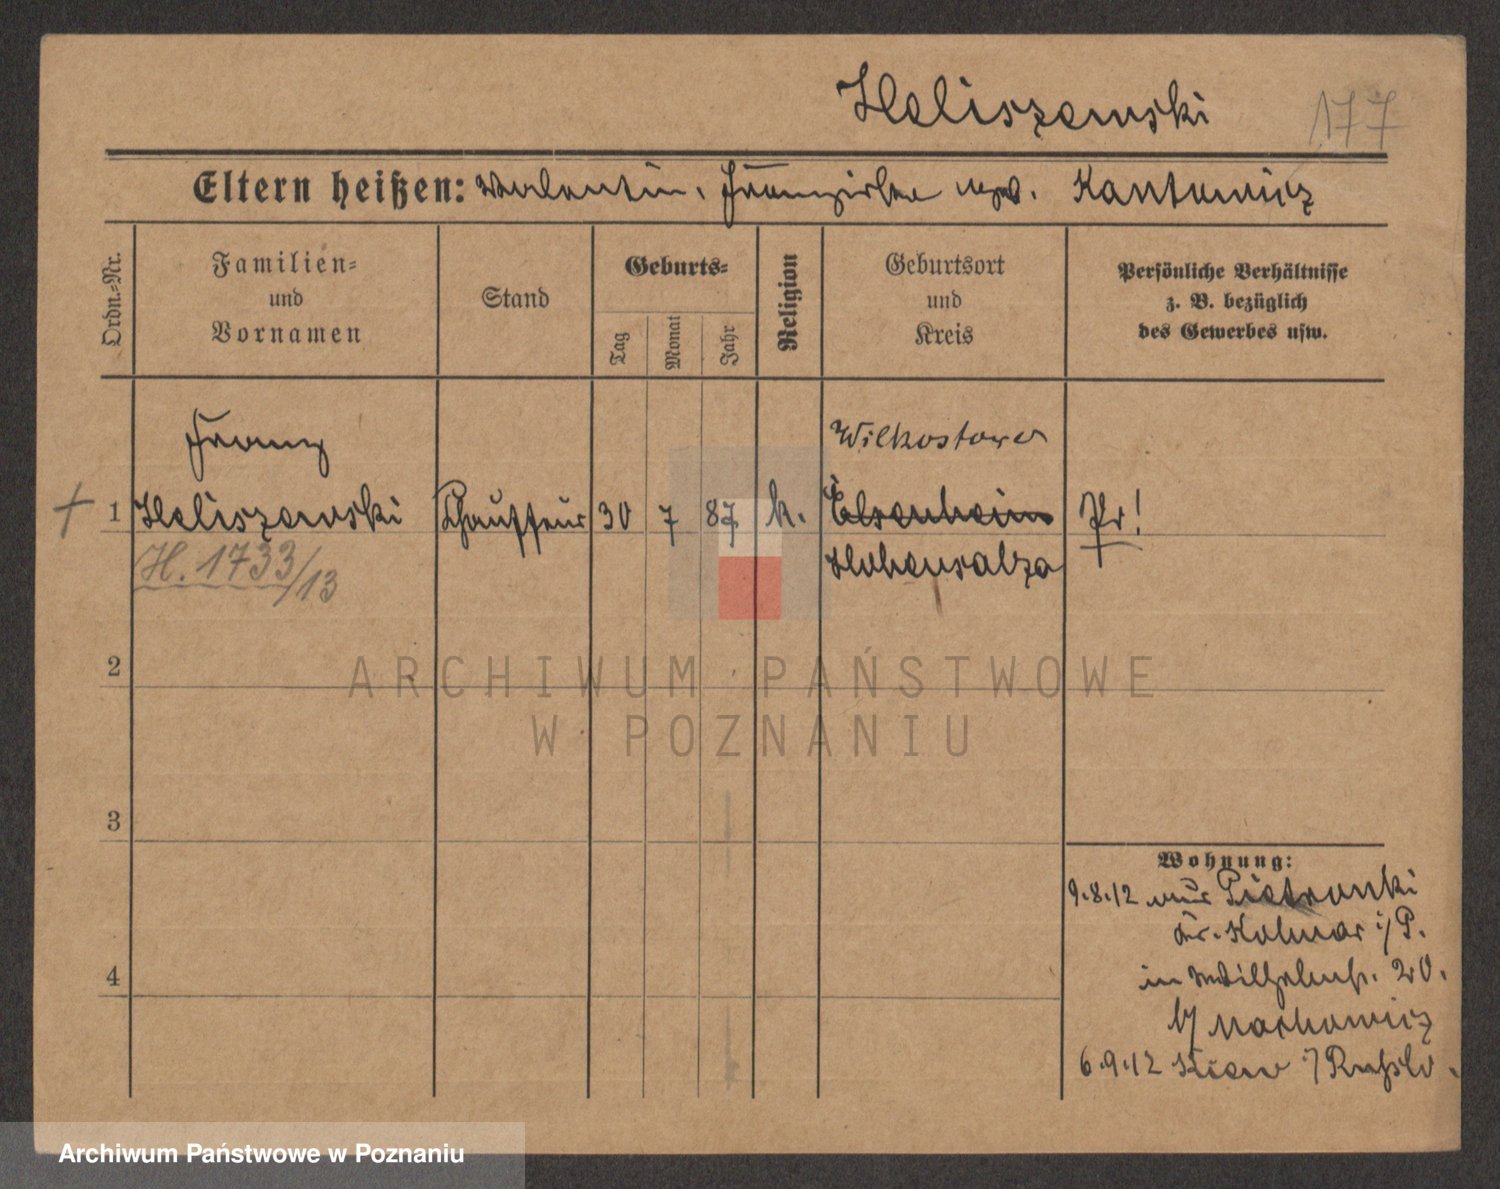 Heliszewski 177
Eltern heißen: Valentin, Franziska geb. Kantowicz
Ordn.=Nr.
Familien=
und
Vornamen
Stand
Geburts=
Tag
Monat
Jahr
Religion
Geburtsort
und
Kreis
Persönliche Verhältnisse
z. B. bezüglich
des Gewerbes usw.
Franz
Wilkostowo
+ 1 Heliszewski Chauffeur 30 7 87 k. Elsenheim Pr!
H. 1733/13
Hohensalza
2
ARCHIWUM PAŃSTWOWE
W POZNANIU
3
Wohnung:
9.8.12 aus Pietronki
Kr. Kolmar i/P.
4
in Wilhelmstr. 20.
b/ Markowicz
6.9.12 Kiew i/Rußld.
Archiwum Państwowe w Poznaniu